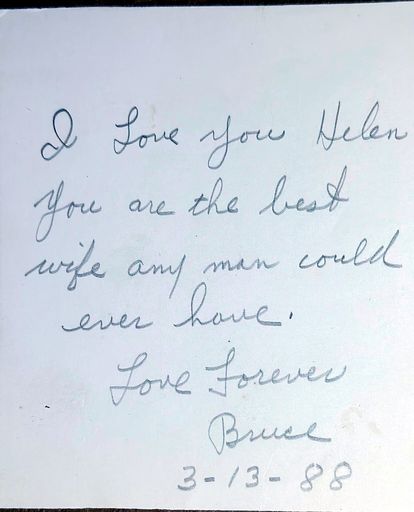 I Love you Helen
You are the best
wife any man could
ever have.
Love Forever
Bruce
3-13-88